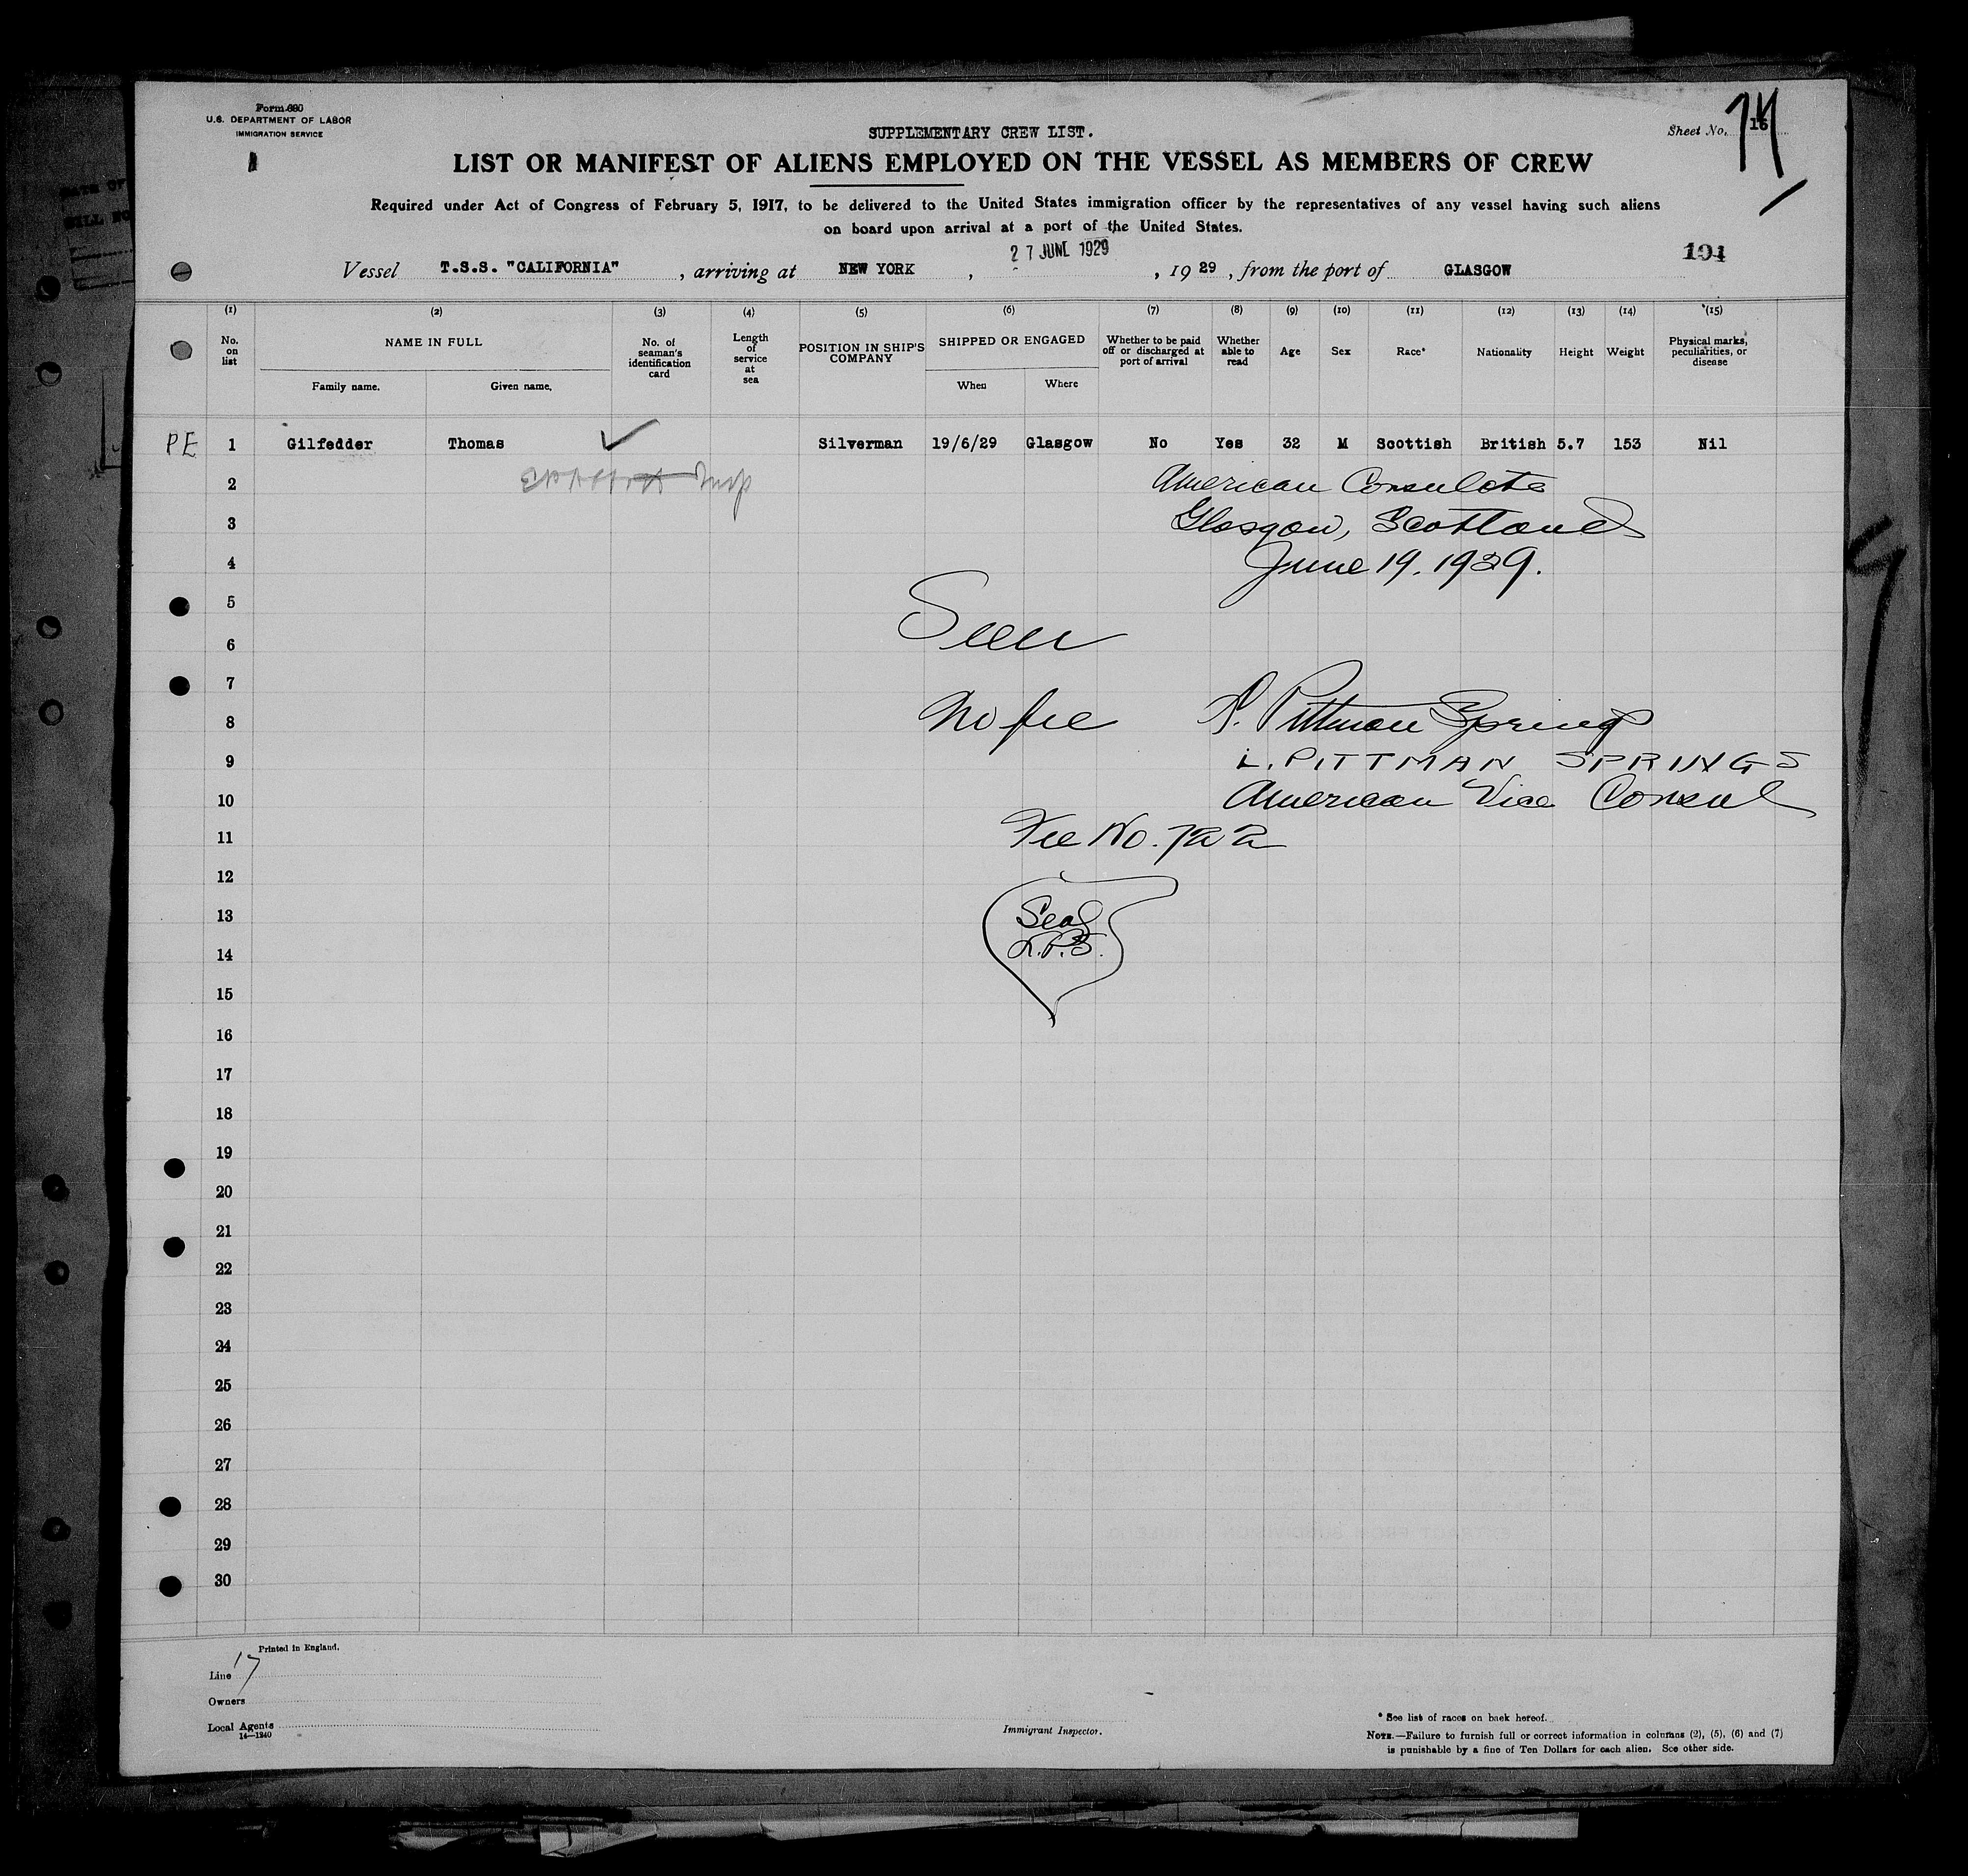 Form 680
U.S. DEPARTMENT OF LABOR
IMMIGRATION SERVICE
SUPPLEMENTARY CREW LIST.
Sheet No. 16
LIST OR MANIFEST OF ALIENS EMPLOYED ON THE VESSEL AS MEMBERS OF CREW
Required under Act of Congress of February 5, 1917, to be delivered to the United States immigration officer by the representatives of any vessel having such aliens
on board upon arrival at a port of the United States.
27 JUNE 1929
194
Vessel T.S.S. "CALIFORNIA", arriving at NEW YORK, , 1929, from the port of GLASGOW
(1) (2) (3) (4) (5) (6) (7) (8) (9) (10) (11) (12) (13) (14) (15)
No. on list
NAME IN FULL
Family name. Given name.
No. of seaman's identification card
Length of service at sea
POSITION IN SHIP'S COMPANY
SHIPPED OR ENGAGED
When Where
Whether to be paid off or discharged at port of arrival
Whether able to read
Age
Sex
Race*
Nationality
Height
Weight
Physical marks, peculiarities, or disease
PE 1 Gilfedder Thomas Silverman 19/6/29 Glasgow No Yes 32 M Scottish British 5.7 153 Nil
2 American Consulate
3 Glasgow, Scotland
4 June 19, 1929.
5
6 Seen
7
8 No fee L. Pittman Springs
9 L. PITTMAN SPRINGS
10 American Vice Consul
11 Fee No. 722
12
13 Seal
14 L.P.S.
15
16
17
18
19
20
21
22
23
24
25
26
27
28
29
30
Printed in England.
Line 17
Owners
Local Agents
14—1240
Immigrant Inspector.
* See list of races on back hereof.
NOTE.—Failure to furnish full or correct information in columns (2), (5), (6) and (7)
is punishable by a fine of Ten Dollars for each alien. See other side.